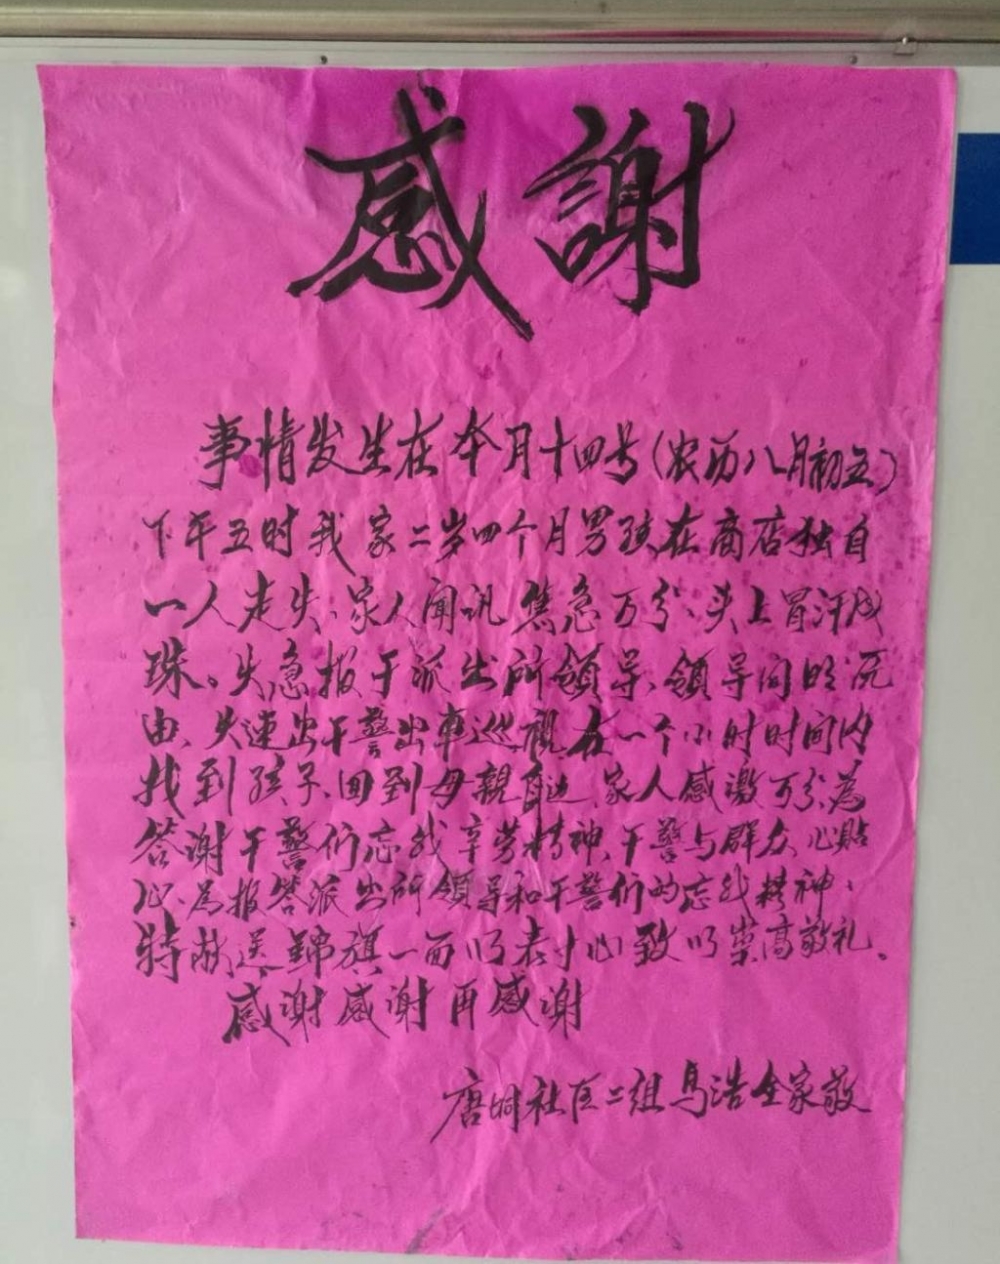 感謝
事情发生在本月十四号(农历八月初五)
下午五时我家二岁四个月男孩在商店独自
一人走失、家人闻讯焦急万分、头上冒汗成
珠。火急报于派出所领导、领导问明况
由、火速出干警出车巡视在一个小时时间内
找到孩子、回到母親身边、家人感激万分、為
答谢干警们忘我辛劳精神、干警与群众心贴
心、為报答派出所领导和干警们的忘我精神、
特献送錦旗一面以表寸心致以崇高敬礼。
感谢感谢再感谢
唐 社区二组馬浩全家敬